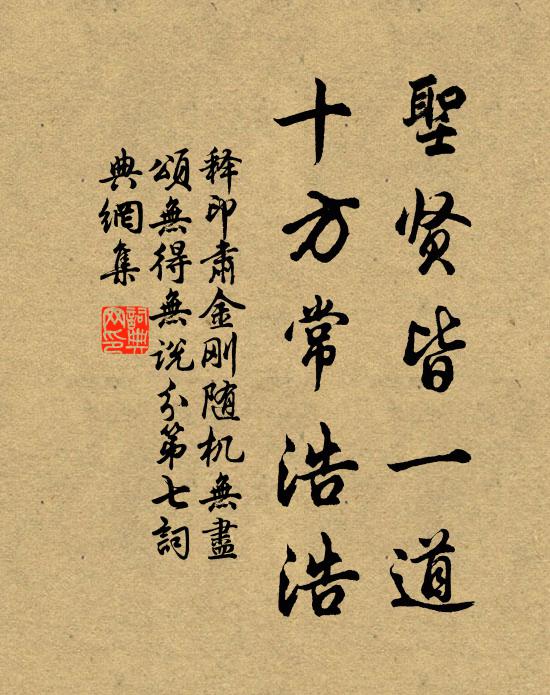 聖贤皆一道
十方常浩浩
释印肃金刚随机無盡
頌無得無说分第七詞
典網集
詞典網印